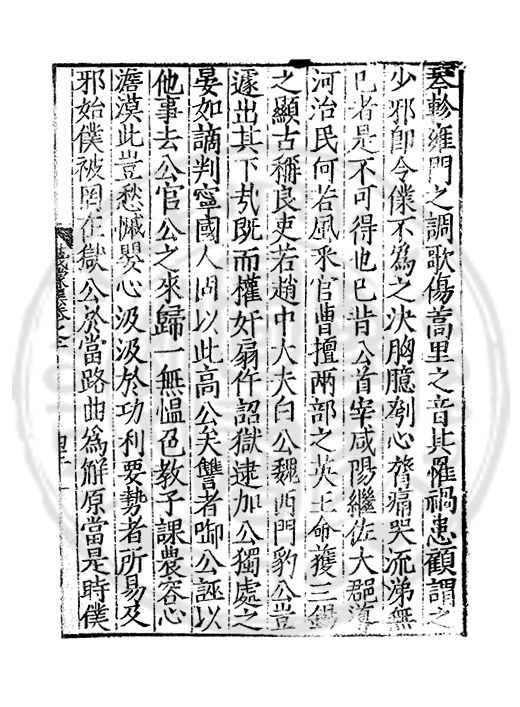 琴軫雍門之調歌傷蒿里之音其罹禍患顧謂之
少邪卽令僕不為之決胸臆刳心膂痛哭流涕無
已者是不可得也已昔公首宰咸陽繼佐大郡導
河治民何若風釆官曹擅兩部之英王命獲三錫
之顯古稱良吏若趙中大夫白公魏西門豹公豈
遽出其下哉既而權奸扇作詔獄逮加公獨處之
晏如謫判寧國人尚以此高公矣讐者啣公誣以
他事去公官公之來歸一無慍色教子課農容心
澹漠此豈愁慽嬰心汲汲於功利要勢者所易及
邪始僕被罔在獄公於當路曲為解原當是時僕